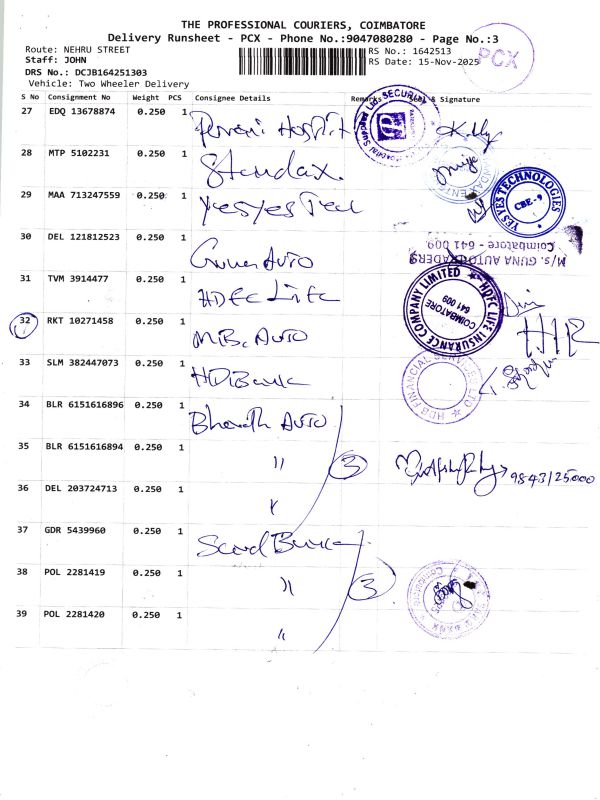 THE PROFESSIONAL COURIERS, COIMBATORE
Delivery Runsheet - PCX - Phone No.:9047080280 - Page No.:3
Route: NEHRU STREET
RS No.: 1642513
Staff: JOHN
RS Date: 15-Nov-2025
PCX
DRS No.: DCJB164251303
Vehicle: Two Wheeler Delivery
S No Consignment No Weight PCS Consignee Details Remarks Seal & Signature
27 EDQ 13678874 0.250 1
SECURITY
28 MTP 5102231 0.250 1 Standax.
29 MAA 713247559 0.250 1 Yesyes Tec
YES YES TECHNOLOGIES
CBE-9
30 DEL 121812523 0.250 1 Guna AUTO
M/S. GUNA AUTO TRADERS
Coimbatore - 641 009
31 TVM 3914477 0.250 1 HDFC Life
HDFC LIFE INSURANCE COMPANY LIMITED
COIMBATORE
641 009
32 RKT 10271458 0.250 1 M.B. AUTO
33 SLM 382447073 0.250 1 HDBank
HDB FINANCIAL SERVICES LTD
34 BLR 6151616896 0.250 1 Bharath AUTO
35 BLR 6151616894 0.250 1 "
3
9843125000
36 DEL 203724713 0.250 1 "
37 GDR 5439960 0.250 1
38 POL 2281419 0.250 1 "
3
39 POL 2281420 0.250 1 "